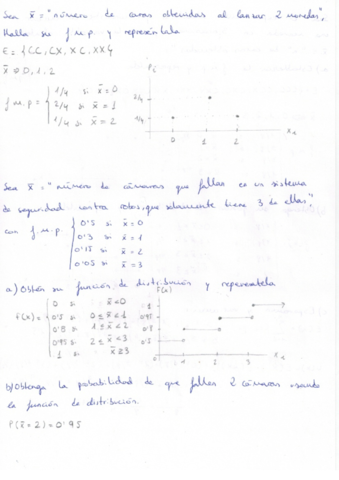 Sea x̄ = "número de caras obtenidas al lanzar 2 monedas".
Halla su f.m.p y represéntala
E = {CC, CX, XC, XX}
x̄ = 0, 1, 2
f.m.p = { 1/4 si x̄ = 0
2/4 si x̄ = 1
1/4 si x̄ = 2
Pi
2/4
1/4
0 1 2 xi
Sea x̄ = "número de cámaras que fallan en un sistema
de seguridad contra robos, que solamente tiene 3 de ellas",
con f.m.p { 0.5 si x̄ = 0
0.3 si x̄ = 1
0.15 si x̄ = 2
0.05 si x̄ = 3
a) Obtén su función de distribución y represéntala
F(x) = { 0 si x̄ < 0
0.5 si 0 ≤ x̄ < 1
0.8 si 1 ≤ x̄ < 2
0.95 si 2 ≤ x̄ < 3
1 si x̄ ≥ 3
F(x)
1
0.95
0.8
0.5
1 2 3 xi
b) Obtenga la probabilidad de que fallen 2 cámaras usando
la función de distribución.
P(x̄ = 2) = 0.95